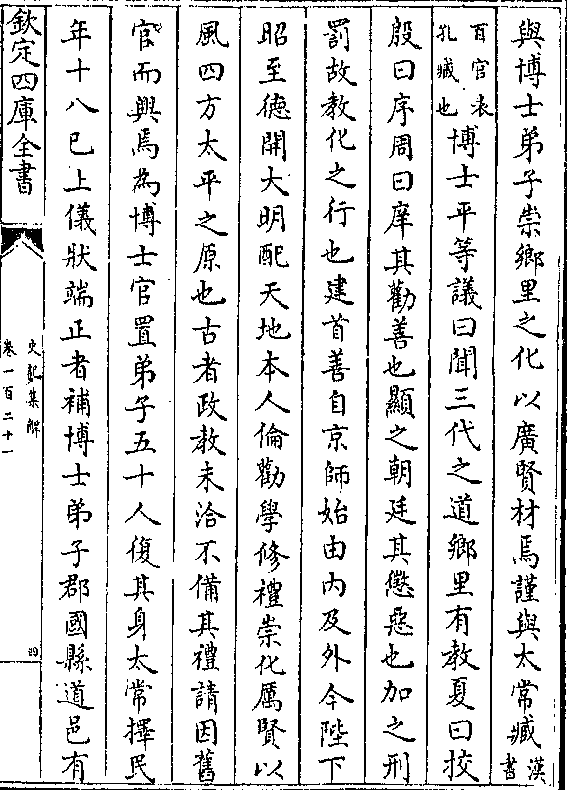 與博士弟子崇鄉里之化以廣賢材焉謹與太常臧漢書
百官表孔臧也博士平等議曰聞三代之道鄉里有教夏曰挍
殷曰序周曰庠其勸善也顯之朝廷其懲惡也加之刑
罰故教化之行也建首善自京師始由內及外今陛下
昭至德開大明配天地本人倫勸學修禮崇化厲賢以
風四方太平之原也古者政教未洽不備其禮請因舊
官而興焉為博士官置弟子五十人復其身太常擇民
年十八已上儀狀端正者補博士弟子郡國縣道邑有
欽定四庫全書
史記集解
卷一百二十一
四